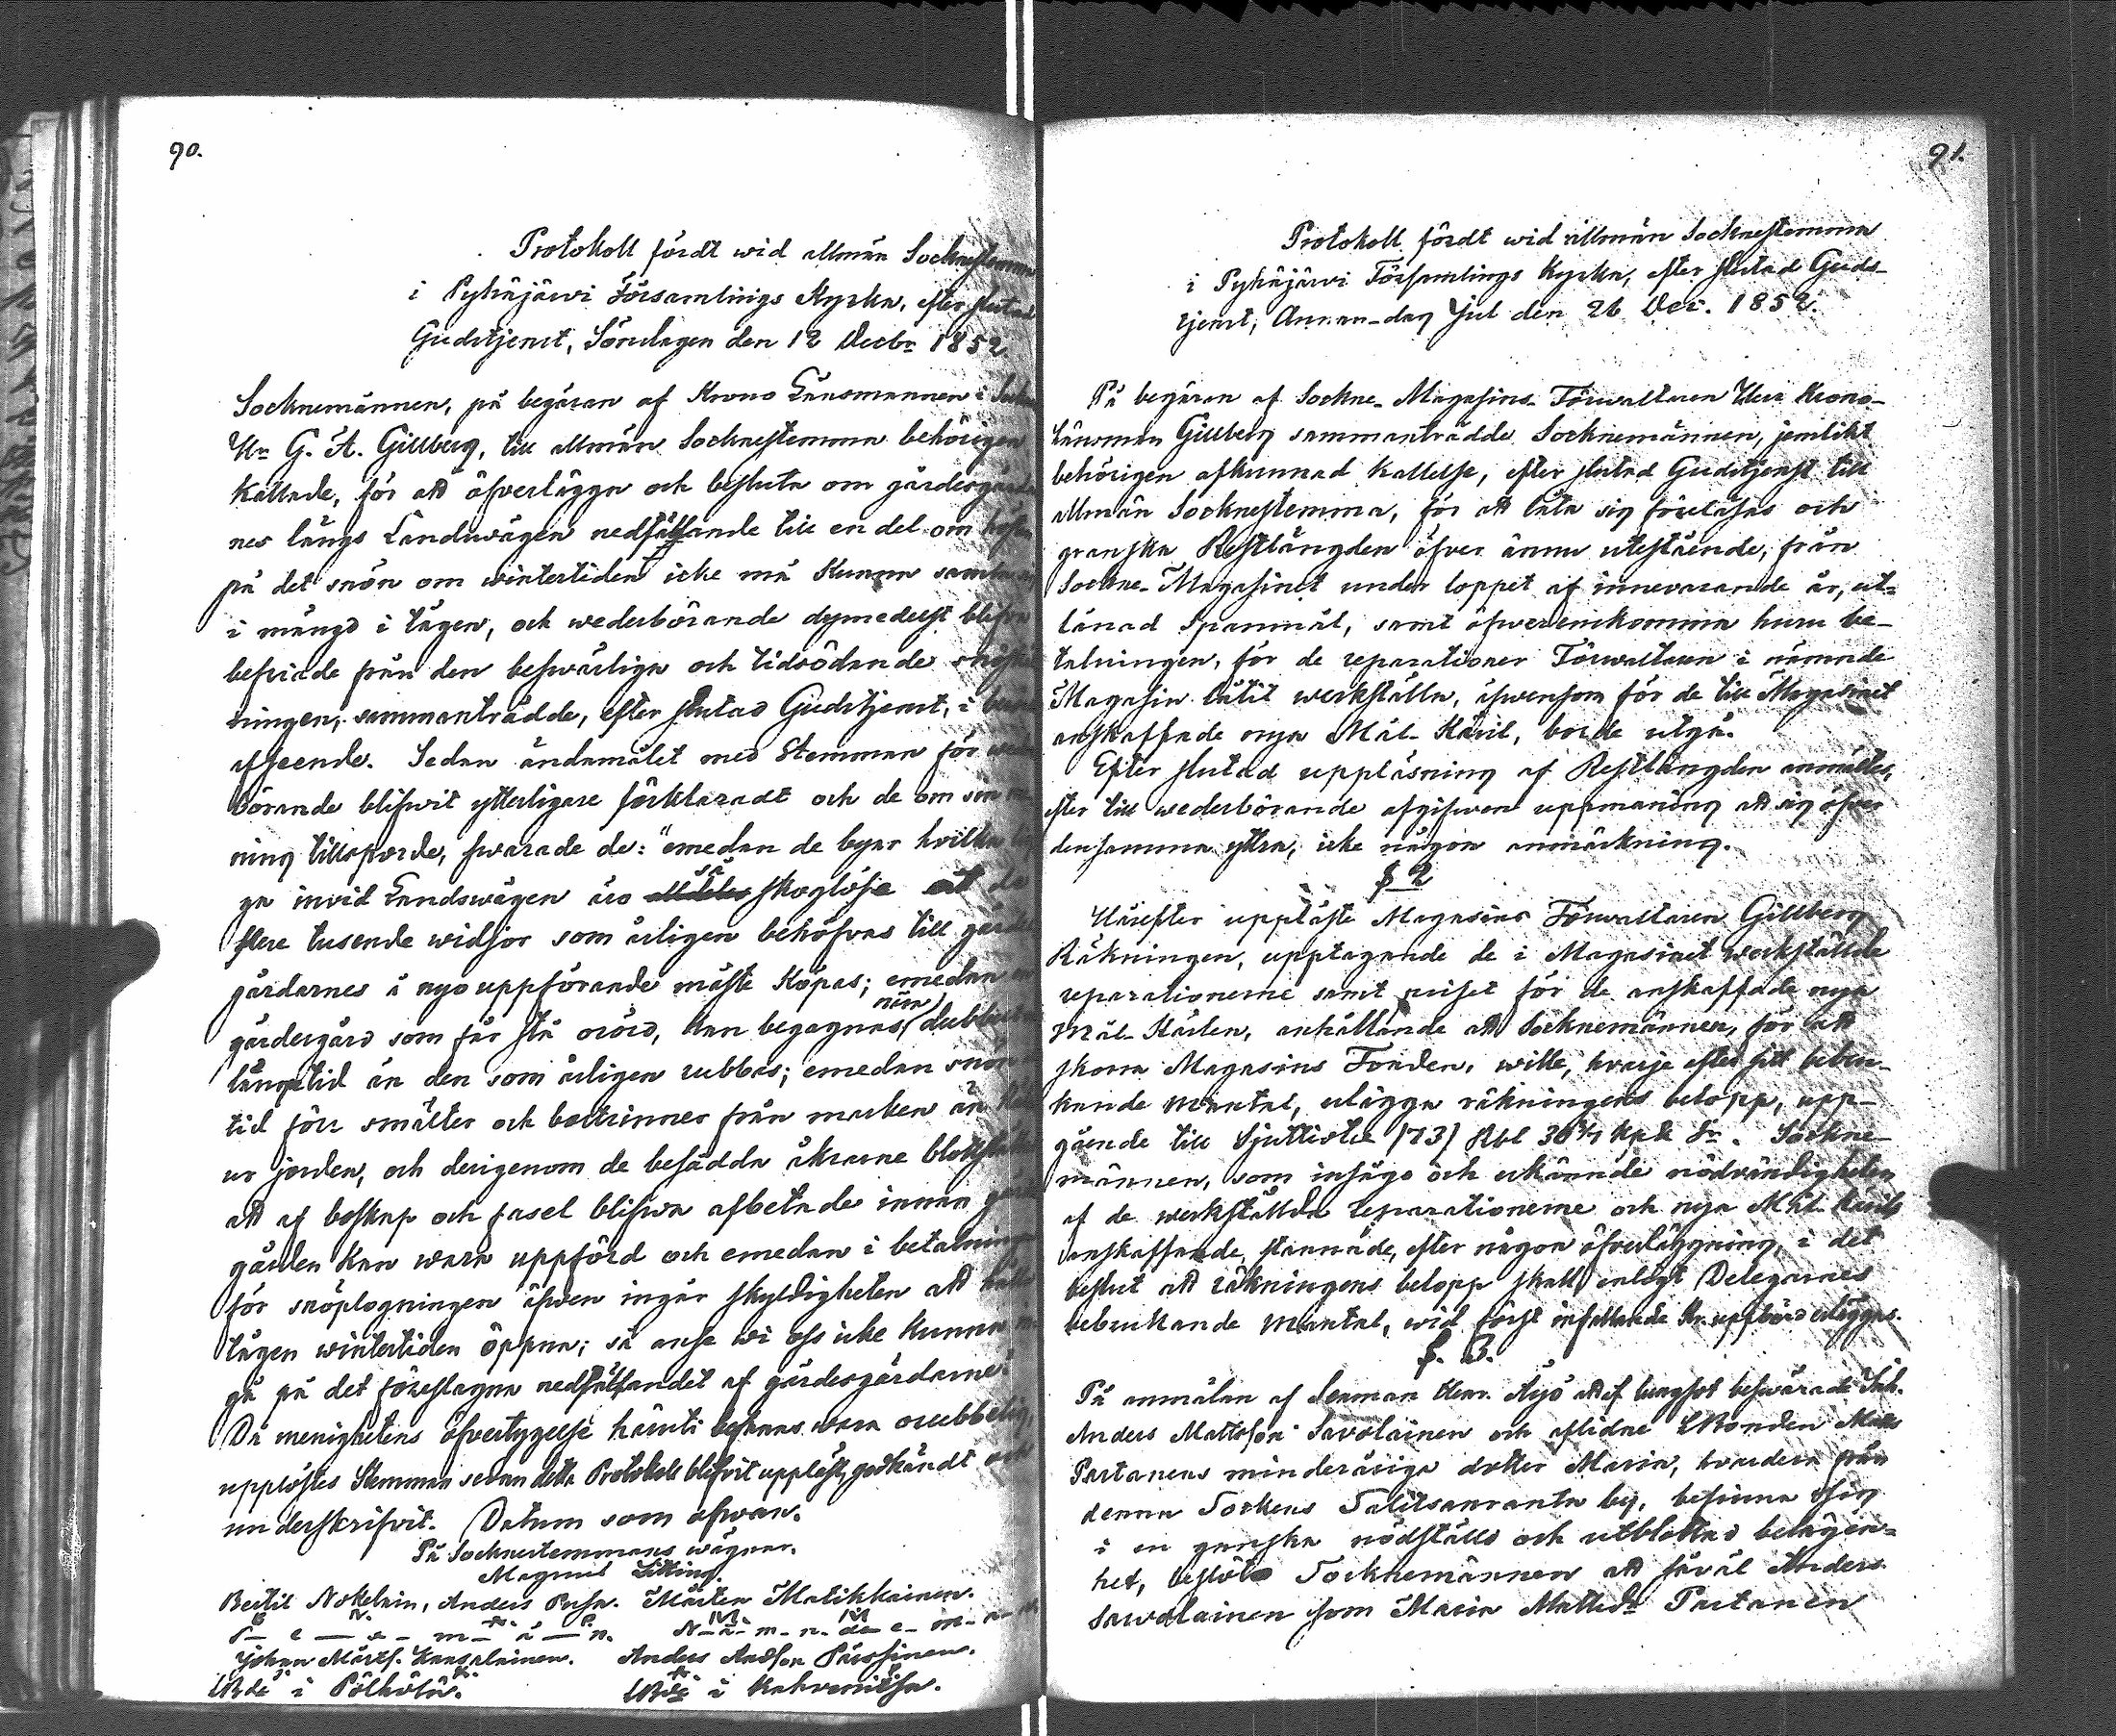 90.
Protokoll fördt wid allmän Socknestemma
i Pyhäjärvi Församlings Kyrka, efter slutad
Gudstjenst, Söndagen den 12 Decbr 1852
Socknemännen, på begäran af Krono Länsmannen i
Hr G. A. Gillberg, till allmän Socknestemma behörigen
Kallade, för att öfverlägga och besluta om
nes längs Landsvägen nedfällande till en del om
på det snön om wintertiden icke må Kunna
i mängd i vägen, och wederbörande dymedelst blifva
befriade från den besvärliga och tidsödande
ningen, sammanträdde, efter slutad Gudstjenst, i
afseende. Sedan ändamålet med Stemman för
börande blifwit ytterligare förklaradt och de om sin
ning tillsporde, swarade de: "emedan de byar hvilka
ga invid Landsvägen äro skoglöse de
flere tusende widjor som årligen behöfvas till
gårdarnes å nyo uppförande måste Köpas; emedan
gärdesgård som får stå orörd, kan begagnas
längre tid än den som årligen rubbas; emedan snön
tid förr smälter och bortrinner från marken än
ur jorden, och derigenom de besådda åkrarne
att af boskap och fasel blifwa afbetade innan
gården Kan wara uppförd och emedan i betalningen
för snöplogningen äfven ingår skyldigheten att hålla
vägen wintertiden öppen; så anse wi oss icke kunna
gå på det föreslagna nedfällandet af gärdesgårdarne"
Då menighetens öfvertygelse häruti befanns vara orubbelig,
upplöstes Stemman sedan detta Protokoll blifvit uppläst, godkändt och
underskrifvit. Datum som ofwan.
På Socknestemmans wägnar.
Magnus
Bertil Nokelain, Anders Mårten Matikkainen.
N-ä-m-n-de-m-ä-n
Johan Anders Andersson Pärssinen.
i Pölhölä. i Kahvenitsa.
91.
Protokoll fördt wid allmän Socknestemma
i Pyhäjärvi Församlings Kyrka, efter slutad Guds-
tjenst, Annan-dag Jul den 26 Dec. 1852.
På begäran af Sockne-Magasins-Förwaltaren Herr Krono-
länsman Gillberg sammanträdde Socknemännen, jemlikt
behörigen afkunnad Kallelse, efter slutad Gudstjenst till
allmän Socknestemma, för att låta sig föreläsas och
granska Restlängden öfver ännu utestående, från
Sockne-Magasinet under loppet af innevarande år, ut-
lånad Spanmål, samt öfverenskomma huru be-
talningen, för de reparationer Förwaltaren i nämnde
Magasin låtit werkställa, äfvensom för de till Magasinet
anskaffade nya Mål-Käril, borde utgå.
Efter slutad uppläsning af Restlängden anmältes,
efter till wederbörande afgifwen uppmaning att sig öfver
densamma yttra, icke någon anmärkning.
§ 2
Härefter uppläste Magasins Förwaltaren Gillberg
Räkningen, upptagande de i Magasinet werkställde
reparationerne samt priset för de anskaffade nya
Mål-Kärlen, anhållande att Socknemännen, för att
skona Magasins Fonden, wille, hvarje efter sitt bebru-
kande Mantal, erlägga räkningens belopp, upp-
gående till Sjuttiotre (73) Rbl 36 4/7 Kpk Sr. Sockne-
männen, som insågo och erkännde nödvändigheten
af de werkställda reparationerne och nya Mål-Kärils
anskaffande, stannade, efter någon öfverläggning, i det
beslut att räkningens belopp skall enligt Delegarnes
bebrukande Mantal, wid först infallande Kr. uppbörd erläggas.
§. 3.
På anmälan af Herr att af besvärade Inh.
Anders Mattsson Savolainen och aflidne LBonden Matts
Partanens minderåriga dotter Maria, hvardera från
denna Sockens Salitsanranta by, befinna sig
i en ganska nödställd och utblottad belägen-
het, beslöto Socknemännen att såväl Anders
Savolainen som Maria Mattsdr Partanen